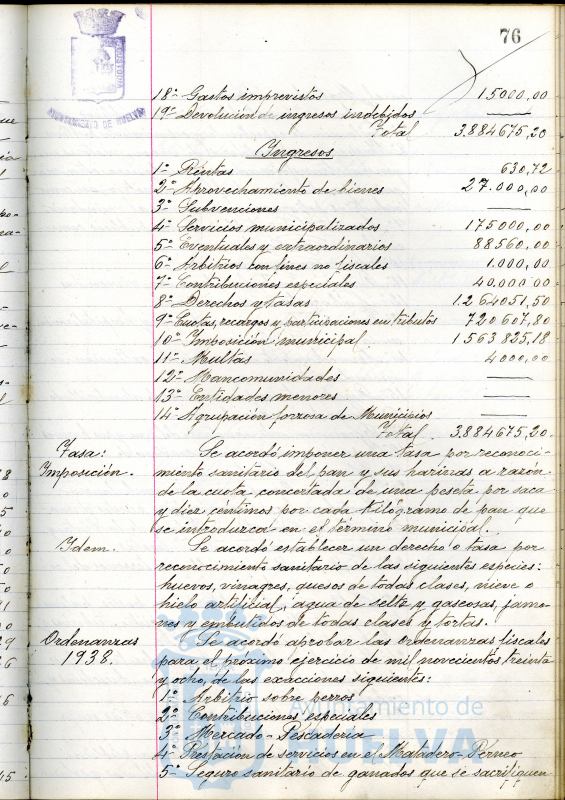 76
AYUNTAMIENTO DE HUELVA
18º Gastos imprevistos 15000,00
19º Devolución de ingresos indebidos ——
Total 3.884675,20
Ingresos
1º Rentas 630,72
2º Aprovechamiento de bienes 27.000,00
3º Subvenciones ——
4º Servicios municipalizados 175000,00
5º Eventuales y extraordinarios 88560,00
6º Arbitrios con fines no fiscales 1.000,00
7º Contribuciones especiales 40.000 00
8º Derechos y tasas 1.264051,50
9º Cuotas, recargos y participaciones en tributos 720607,80
10º Imposición municipal 1563825,18
11º Multas 4000,00
12º Mancomunidades ——
13º Entidades menores ——
14º Agrupación forzosa de Municipios ——
Total 3.884675,20.
Tasa: Se acordó imponer una tasa por reconoci-
Imposición. miento sanitario del pan y sus harinas a razón
de la cuota concertada de una peseta por saca
y diez céntimos por cada kilógramo de pan que
se introduzca en el término municipal.
Idem. Se acordó establecer un derecho o tasa por
reconocimiento sanitario de las siguientes especies:
huevos, vinagres, quesos de todas clases, nieve o
hielo artificial, agua de seltz y gaseosas, jamo-
nes y embutidos de todas clases y tortas.
Ordenanzas Se acordó aprobar las Ordenanzas fiscales
1938. para el próximo ejercicio de mil novecientos treinta
y ocho, de las exacciones siguientes:
1º Arbitrio sobre perros
2º Contribuciones especiales
3º Mercado-Pescadería
4º Prestación de servicios en el Matadero-Perneo
5º Seguro sanitario de ganados que se sacrifiquen
Ayuntamiento de
HUELVA